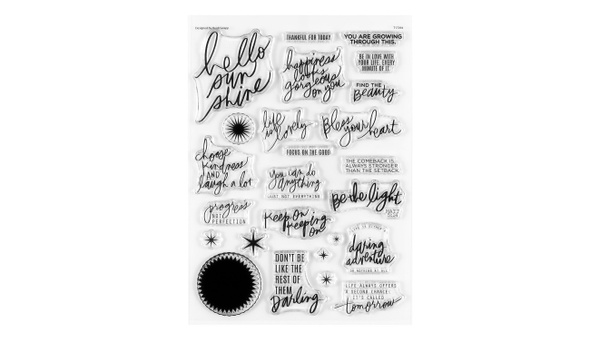 hello
sun
shine
THANKFUL FOR TODAY
YOU ARE GROWING
THROUGH THIS.
happiness
looks
gorgeous
on you
BE IN LOVE WITH
YOUR LIFE. EVERY
MINUTE OF IT.
FIND THE
Beauty
life
is lovely
Bless your heart
choose
kindness
AND
laugh a lot
FOCUS ON THE GOOD
THE COMEBACK IS
ALWAYS STRONGER
THAN THE SETBACK.
you can do
anything
JUST NOT EVERYTHING
Be the light
progress
NOT
PERFECTION
keep on
keeping
on
LIFE IS EITHER A
daring
adventure
OR NOTHING AT ALL
DON'T BE
LIKE THE
REST OF
THEM
Darling
LIFE ALWAYS OFFERS
A SECOND CHANCE:
IT'S CALLED
tomorrow